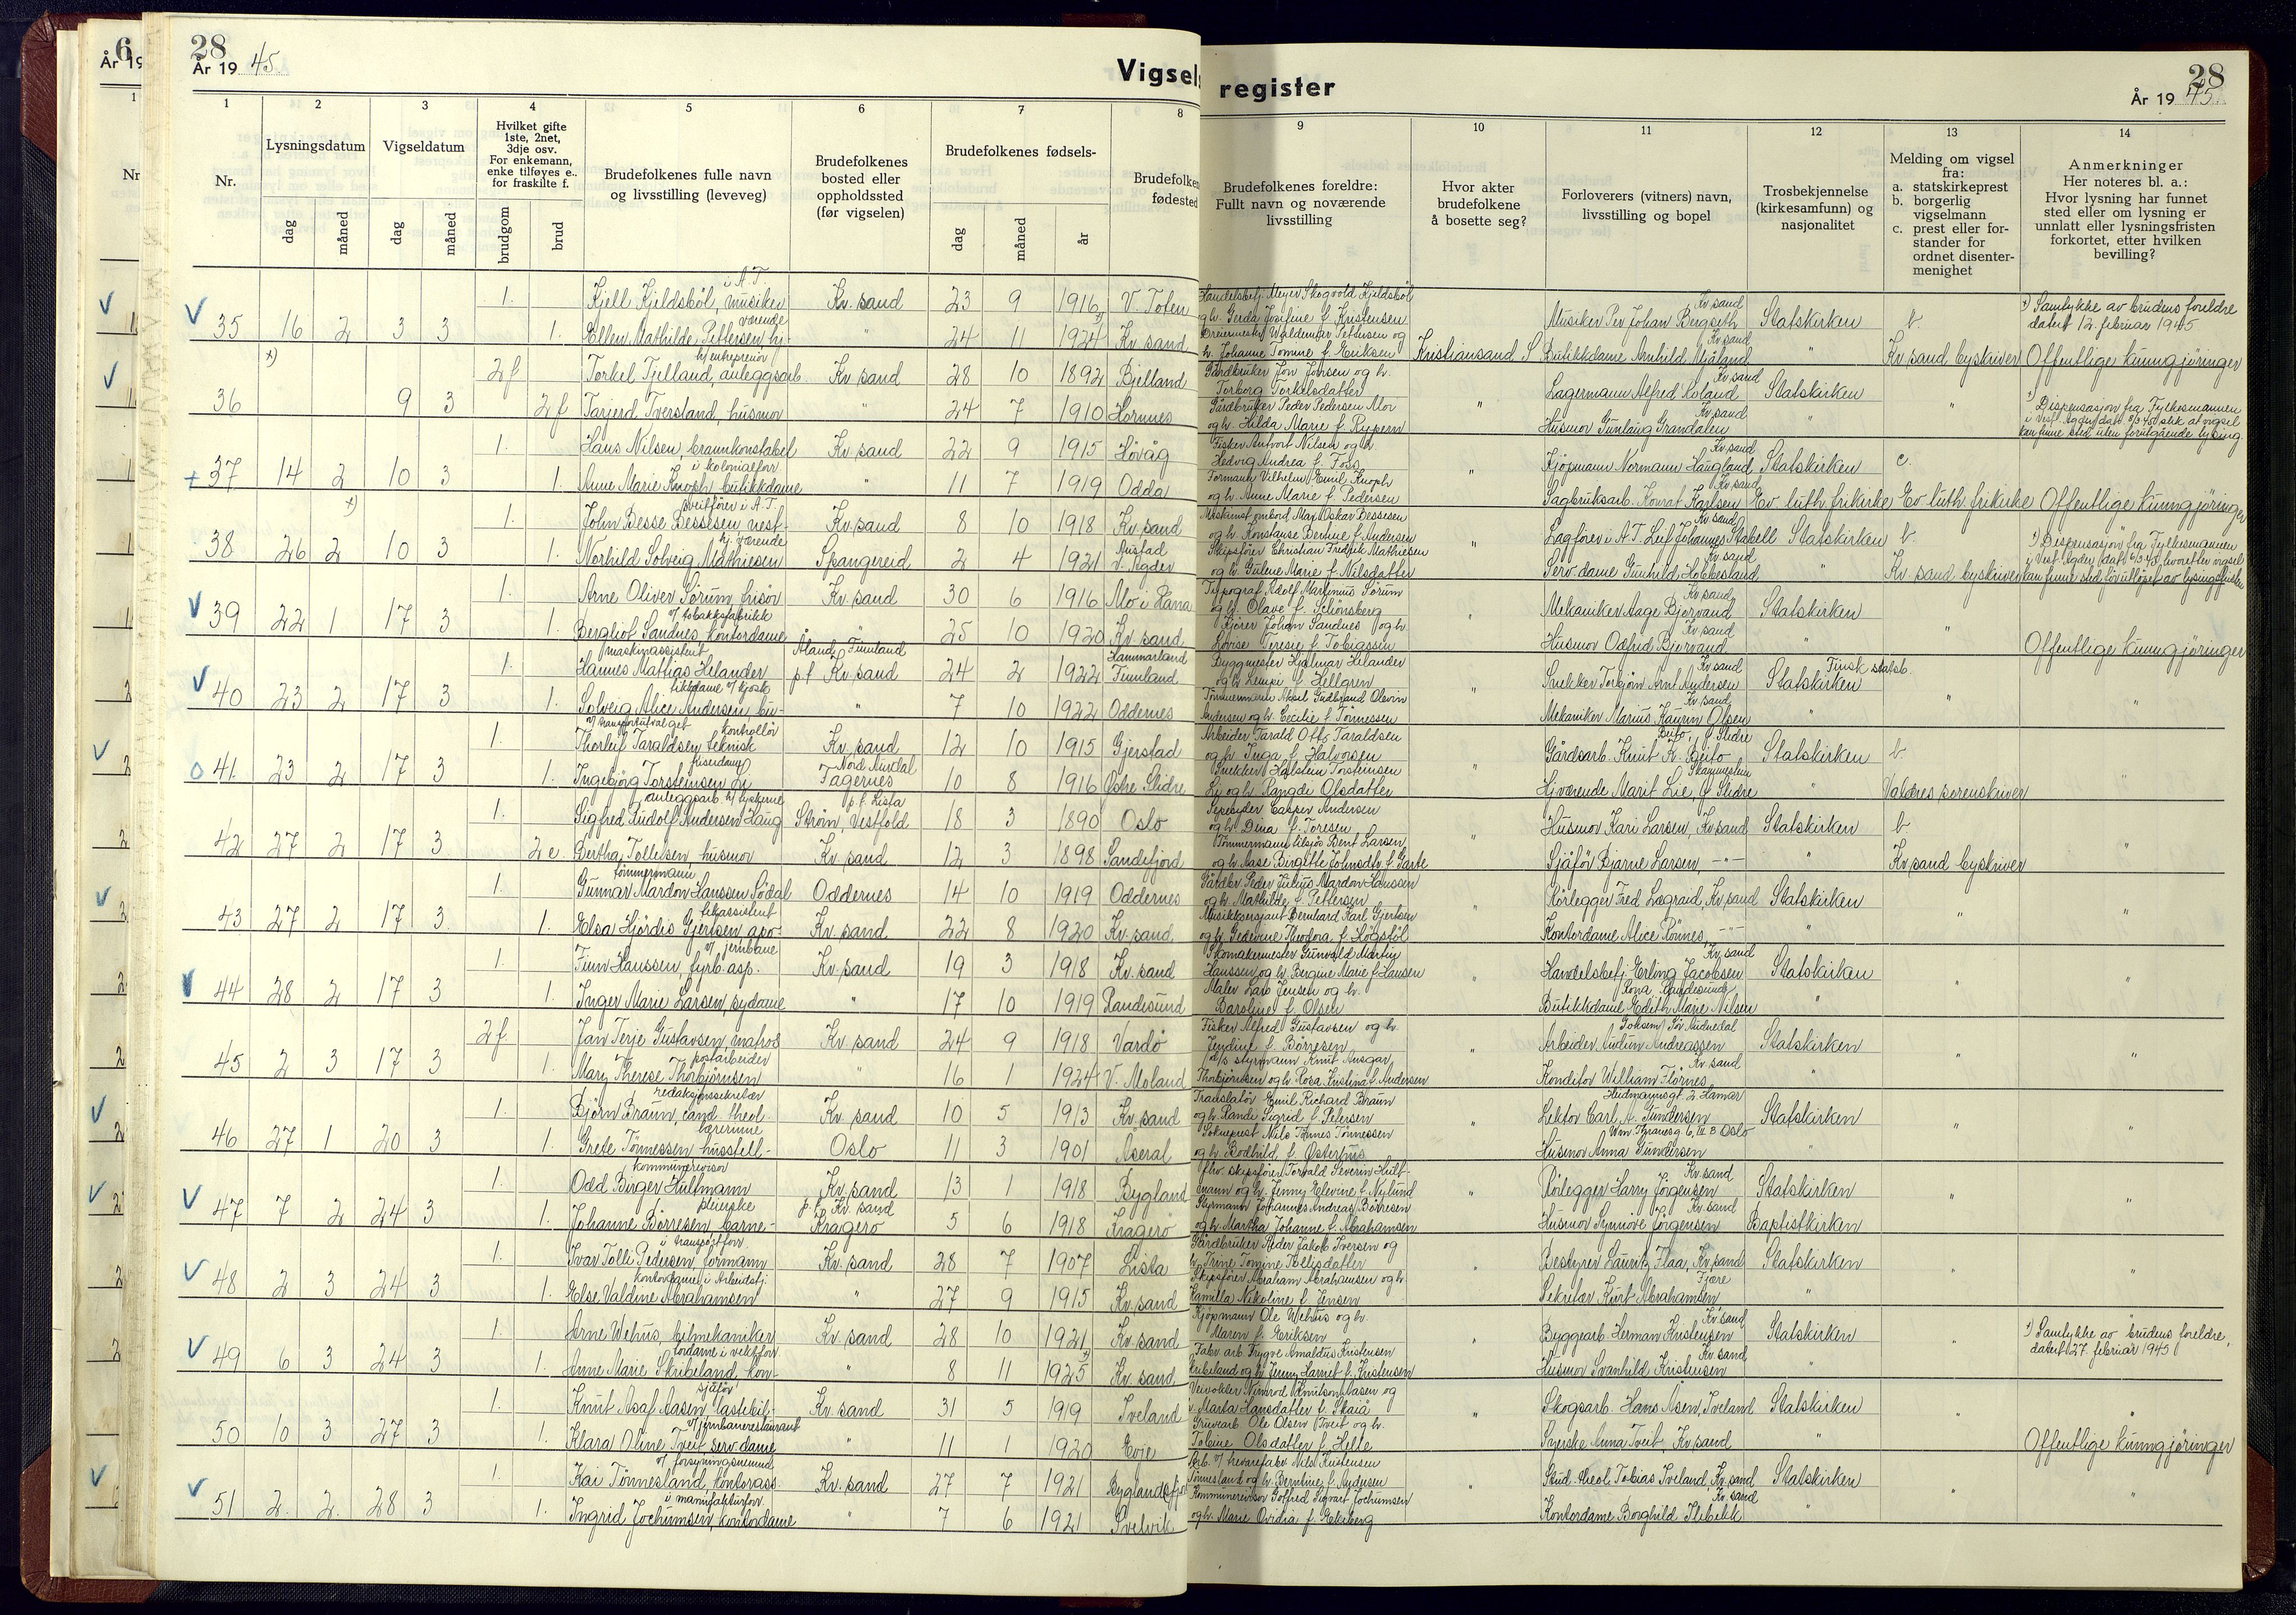 28
År 1945.
Vigsels
register
28
År 1945.
6
År 19
1
2
3
4
5
6
7
8
9
10
11
12
13
14
Nr.
Lysningsdatum
Vigseldatum
Hvilket gifte
1ste, 2net,
3dje osv.
For enkemann,
enke tilføyes e..
for fraskilte f.
Brudefolkenes fulle navn
og livsstilling (leveveg)
Brudefolkenes
bosted eller
oppholdssted
(før vigselen)
Brudefolkenes fødsels-
Brudefolken
fødested
Brudefolkenes foreldre:
Fullt navn og noværende
livsstilling
Hvor akter
brudefolkene
å bosette seg?
Forloverers (vitners) navn,
livsstilling og bopel
Trosbekjennelse
(kirkesamfunn) og
nasjonalitet
Melding om vigsel
fra:
a. statskirkeprest
b. borgerlig
vigselmann
c. prest eller for-
stander for
ordnet disenter-
menighet
Anmerkninger
Her noteres bl. a.:
Hvor lysning har funnet
sted eller om lysning er
unnlatt eller lysningsfristen
forkortet, etter hvilken
bevilling?
dag måned dag måned brudgom brud dag måned år
35 16 2 3 3
1. Kjell Kjeldsböl, musiker i A.T. Kr. sand 23 9 1916 V. Toten
Handelsbetj. Meyer Skogvold Kjeldsböl
og h. Gerda Josefine f. Kristensen
Musiker Per Johan Bergseth Kr. sand Statskirken b.
*) Samtykke av brudens foreldre
datert 12. februar 1945.
1. Ellen Mathilde Pettersen hj.værende " 24 11 1924 Kr. sand
Dreiermester Waldemar Pettersen og
h. Johanne Tomine f. Eriksen Kristiansand S Butikkdame Arnhild Mjåland Kr. sand " Kr. sand byskriver Offentlige kunngjöringer
36 *) 9 3
2f Torkel Tjelland, anleggsarb. h/entreprenör Kr. sand 28 10 1892 Bjelland
Gårdbruker Jon Jonsen og h.
Torborg Torkelsdatter
Lagermann Alfred Roland Kr. sand Statskirken
2f Tarjerd Tverstand, husmor " 24 7 1910 Hornnes
Gårdbruker Peder Pedersen Mor
og h. Hilda Marie f.
" Husmor Gunlaug Grandalen Kr. sand " "
*) Dispensasjon fra Fylkesmannen
i Vest-Agder, dat. 8/3 45 slik at vigsel
kan finne sted uten forutgående lysing.
37 14 2 10 3
1. Hans Nilsen, brannkonstabel Kr. sand 22 9 1915 Hövåg
Fisker Antvort Nilsen og h.
Hedvig Andrea f. Foss
Kjöpmann Normann Haugland Kr. sand Statskirken c.
1. Anne Marie Knoph, butikkdame i kolonialforr. " 11 7 1919 Odda
Formann Vilhelm Emil Knoph
og h. Anne Marie f. Pedersen
" Sagbruksarb. Konrat Karlsen Kr. sand Ev. luth. frikirke Ev. luth. frikirke Offentlige kunngjöringer
38 26 2 *) 10 3
1. John Besse Bessesen nest-sveitförer i A.T. Kr. sand 8 10 1918 Kr. sand
Maskinist ombord Max Oskar Bessesen
og h. Konstanse Bertine f. Andersen
Lagförer i A.T. Leif Johannes Stabell Kr. sand Statskirken b.
1. Norhild Solveig Mathiesen hj. værende Spangereid 2 4 1921 Austad V. Agder
Skipsförer Christian Fredrik Mathiesen
og h. Gulene Marie f. Nilsdatter
" Serv. dame Gunhild Hobbesland Kr. sand " Kr. sand byskriver
*) Dispensasjon fra Fylkesmannen
i Vest-Agder, dat. 6/3 45, hvoretter vigsel
kan finne sted för utlöpet av lysingsfristen
39 22 1 17 3
1. Arne Oliver Sörum, frisör Kr. sand 30 6 1916 Mo i Rana
Typograf Adolf Martinius Sörum
og h. Olave f. Schönsberg
Mekaniker Aage Bjorvand Kr. sand Statskirken
1. Bergliot Sandnes kontordame v/ tobakksfabrikk " 25 10 1920 Kr. sand
Kjörer Johan Sandnes og h.
Lovise Terese f. Tobiassen
" Husmor Odfrid Bjorvand Kr. sand " " Offentlige kunngjöringer
40 23 2 17 3
1. Hannes Mattias Helander maskinassistent Åland, Finnland p.t. Kr. sand 24 2 1922 Hammarland Finnland
Byggmester Hjalmar Helander
og h. Lempi f. Hellgren
Snekker Torbjörn Arnt Andersen Kr. sand Finsk statsb. Statskirken
1. Solveig Alice Andersen bu-tikkdame i/ kjosk " 7 10 1922 Oddernes
Tömmermann Aksel Gudbrand Olsvin
Andersen og h. Cecilie f. Tönnessen
" Mekaniker Marius Kaurin Olsen Kr. sand " " "
41. 23 2 17 3
1. Thorleif Taraldsen teknisk kontrollör v/ transportutvalget Kr. sand 12 10 1915 Gjerstad
Arbeider Tarald Otto Taraldsen
og h. Inga f. Halvorsen
Gårdsarb. Knut K. Beito Beito, Ö. Slidre Statskirken b
1. Ingebörg Torsteinsen Li Nord Aurdal Fagernes 10 8 1916 Östre Slidre
Snekker Halstein Torsteinsen
Li og h. Rangdi Olsdatter
" Hj.værende Marit Lie, Ö Slidre Skammestein " Valdres sorenskriver "
42 27 2 17 3
1. Sigfred Rudolf Andersen Haug anleggsarb. h/ tyskerne p.t. Lista Ström, Vestfold 18 3 1890 Oslo
Sepesyder Casper Andersen
og h. Dina f. Toresen
Husmor Kari Larsen, Kr. sand Statskirken b.
2e. Bertha Tollefsen, husmor Kr. sand 12 3 1898 Sandefjord
Tömmermann tilsjös Bent Larsen
og h. Aase Birgitte Johnsdtr. f. Garte
" Sjåför Bjarne Larsen, -"- " Kr. sand byskriver "
43 27 2 17 3.
1. Gunnar Mardon Hanssen Södal tömmermann Oddernes 14 10 1919 Oddernes
Gårdbr. Peder Julius Mardon Hanssen
og h. Mathilde f. Pettersen
Rörlegger Fred Lægraid, Kr. sand Statskirken
1. Elsa Hjördis Gjertsen, apo-tekassistent Kr. sand 22 8 1920 Kr. sand
Musikksersjant Bernhard Karl Gjertsen
og h. Gederine Theodora f. Högsföl
" Kontordame Alice Rönnes, -"- " " "
44 28 2 17 3
1. Finn Hanssen, fyrb. asp. v/ jernbane Kr. sand 19 3 1918 Kr. sand
Skomakermester Gunvald Martin
Hanssen og h. Bergine Marie f. Hansen
Handelsbetj. Erling Jacobsen Kr. sand Statskirken
1. Inger Marie Larsen, sydame " 17 10 1919 Randesund
Maler Lars Jensen og h.
Baroline f. Olsen
" Butikkdame Edith Marie Nilsen Rona, Randesund " " "
45 2 3 17 3
2f. Jan Terje Gustavsen, matros Kr. sand 24 9 1918 Vardö
Fisker Alfred Gustavsen og h.
Jendine f. Börresen
Arbeider Audun Andreassen Gohsem, Sör Audnedal Statskirken
1. Mary Therese Thorbjörnsen postarbeider " 16 1 1924 V. Moland
D/s styrmann Knut Ansgar
Thorbjörnsen og h. Rosa Kristina f. Andersen
" Konditor William Flörnes Kr. sand " " "
46 27 1 20 3
1. Björn Braun, cand. theol. redaksjonssekretær Kr. sand 10 5 1913 Kr. sand
Translatör Emil Richard Braun
og h. Randi Sigrid f. Petersen
Lektor Carl A. Gundersen Heidmannsgt. 2, Hamar Statskirken
1. Grete Tönnessen husstell-lærerinne Oslo 11 3 1901 Åseral
Sokneprest Nils Tönnes Tönnessen
og h. Bodhild f. Österhus
" Husmor Anna Gundersen Wm. Thranesg. 6, IV B Oslo " " "
47 7 2 24 3
1. Odd Birger Hultmann kommunerevisor Kr. sand 13 1 1918 Bygland
fhv. skipsförer Torvald Severin Hult-
mann og h. Jenny Elevine f. Nylund
Rörlegger Harry Jörgensen Kr. sand Statskirken
1. Johanne Börresen, barne-pleierske p.t. Kr. sand Kragerö 5 6 1918 Kragerö
Styrmann Johannes Andreas Börresen
og h. Martha Johanne f. Abrahamsen
" Husmor Synnöve Jörgensen Kr. sand Baptistkirken " "
48 2 3 24 3
1. Ivar Tolli Pedersen, formann i transportforr. Kr. sand 28 7 1907 Lista
Gårdbruker Peder Jakob Iversen og
h. Trine Tomine Tollisdatter
Bestyrer Lauritz Flaa, Kr. sand Statskirken
1. Else Valdine Abrahamsen kontordame i Arbeidstj. " 27 9 1915 Kr. sand
Skipsförer Abraham Abrahamsen og h.
Kamilla Nikoline f. Jensen
" Sekretær Kurt Abrahamsen Fjære " " "
49 6 3 24 3
1. Arne Wehus, bilmekaniker Kr. sand 28 10 1921 Kr. sand
Kjöpmann Ole Wehus og h.
Maren f. Eriksen
Byggearb. Herman Kristensen Kr. sand Statskirken
*) Samtykke av brudens foreldre,
datert 27. februar 1945
1. Anne Marie Skribeland, kon-tordame i vektforr. " 8 11 1925 *) Kr. sand
Fabr. arb. Trygve Arnaldus Kristensen
Skribeland og h. Jenny Harriet f. Kristensen
" Husmor Svanhild Kristensen Kr. sand " "
50 10 3 27 3
1. Knut Asaf Aasen, lastebil-sjåför Kr. sand 31 5 1919 Iveland
Veivokter Nimrod Knutson Aasen og
h. Marta Hansdatter f. Skaiå
Skogsarb. Hans Åsen, Iveland Statskirken "
1. Klara Oline Tveit serv.dame v/jernbanerestaurant " 11 1 1920 Evje
Gruvearb. Ole Olsen Tveit og h.
Tobine Olsdatter f. Helle
" Syerske Anna Tveit Kr. sand " " Offentlige kunngjöringer
51 2. 2. 28 3
1. Kai Tönnesland, kontorass. v/ forsyningsnemnd Kr. sand 27 7 1921 Byglandsfjord
Arb. v/ trevarefabr. Nils Kristensen
Tönnesland og h. Berntine f. Andersen
Stud. theol. Tobias Iveland Kr. sand Statskirken
1. Ingrid Jochumsen, kontordame i manufakturforr. " 7 6 1921 Svelvik
Kommunerevisor Gotfred Sigvart Jochumsen
og h. Marie Ovidia f. Ekeberg
" Kontordame Borghild Stibikk Kr. sand " "